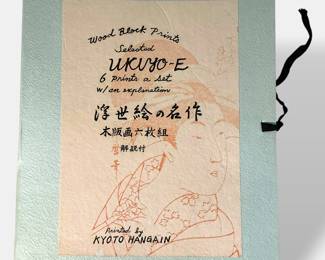 Wood Block Prints
Selected
UKIYO-E
6 prints a set
w/an explanation
浮世絵の名作
木版画六枚組
解説付
Printed by
KYOTO HANGAIN